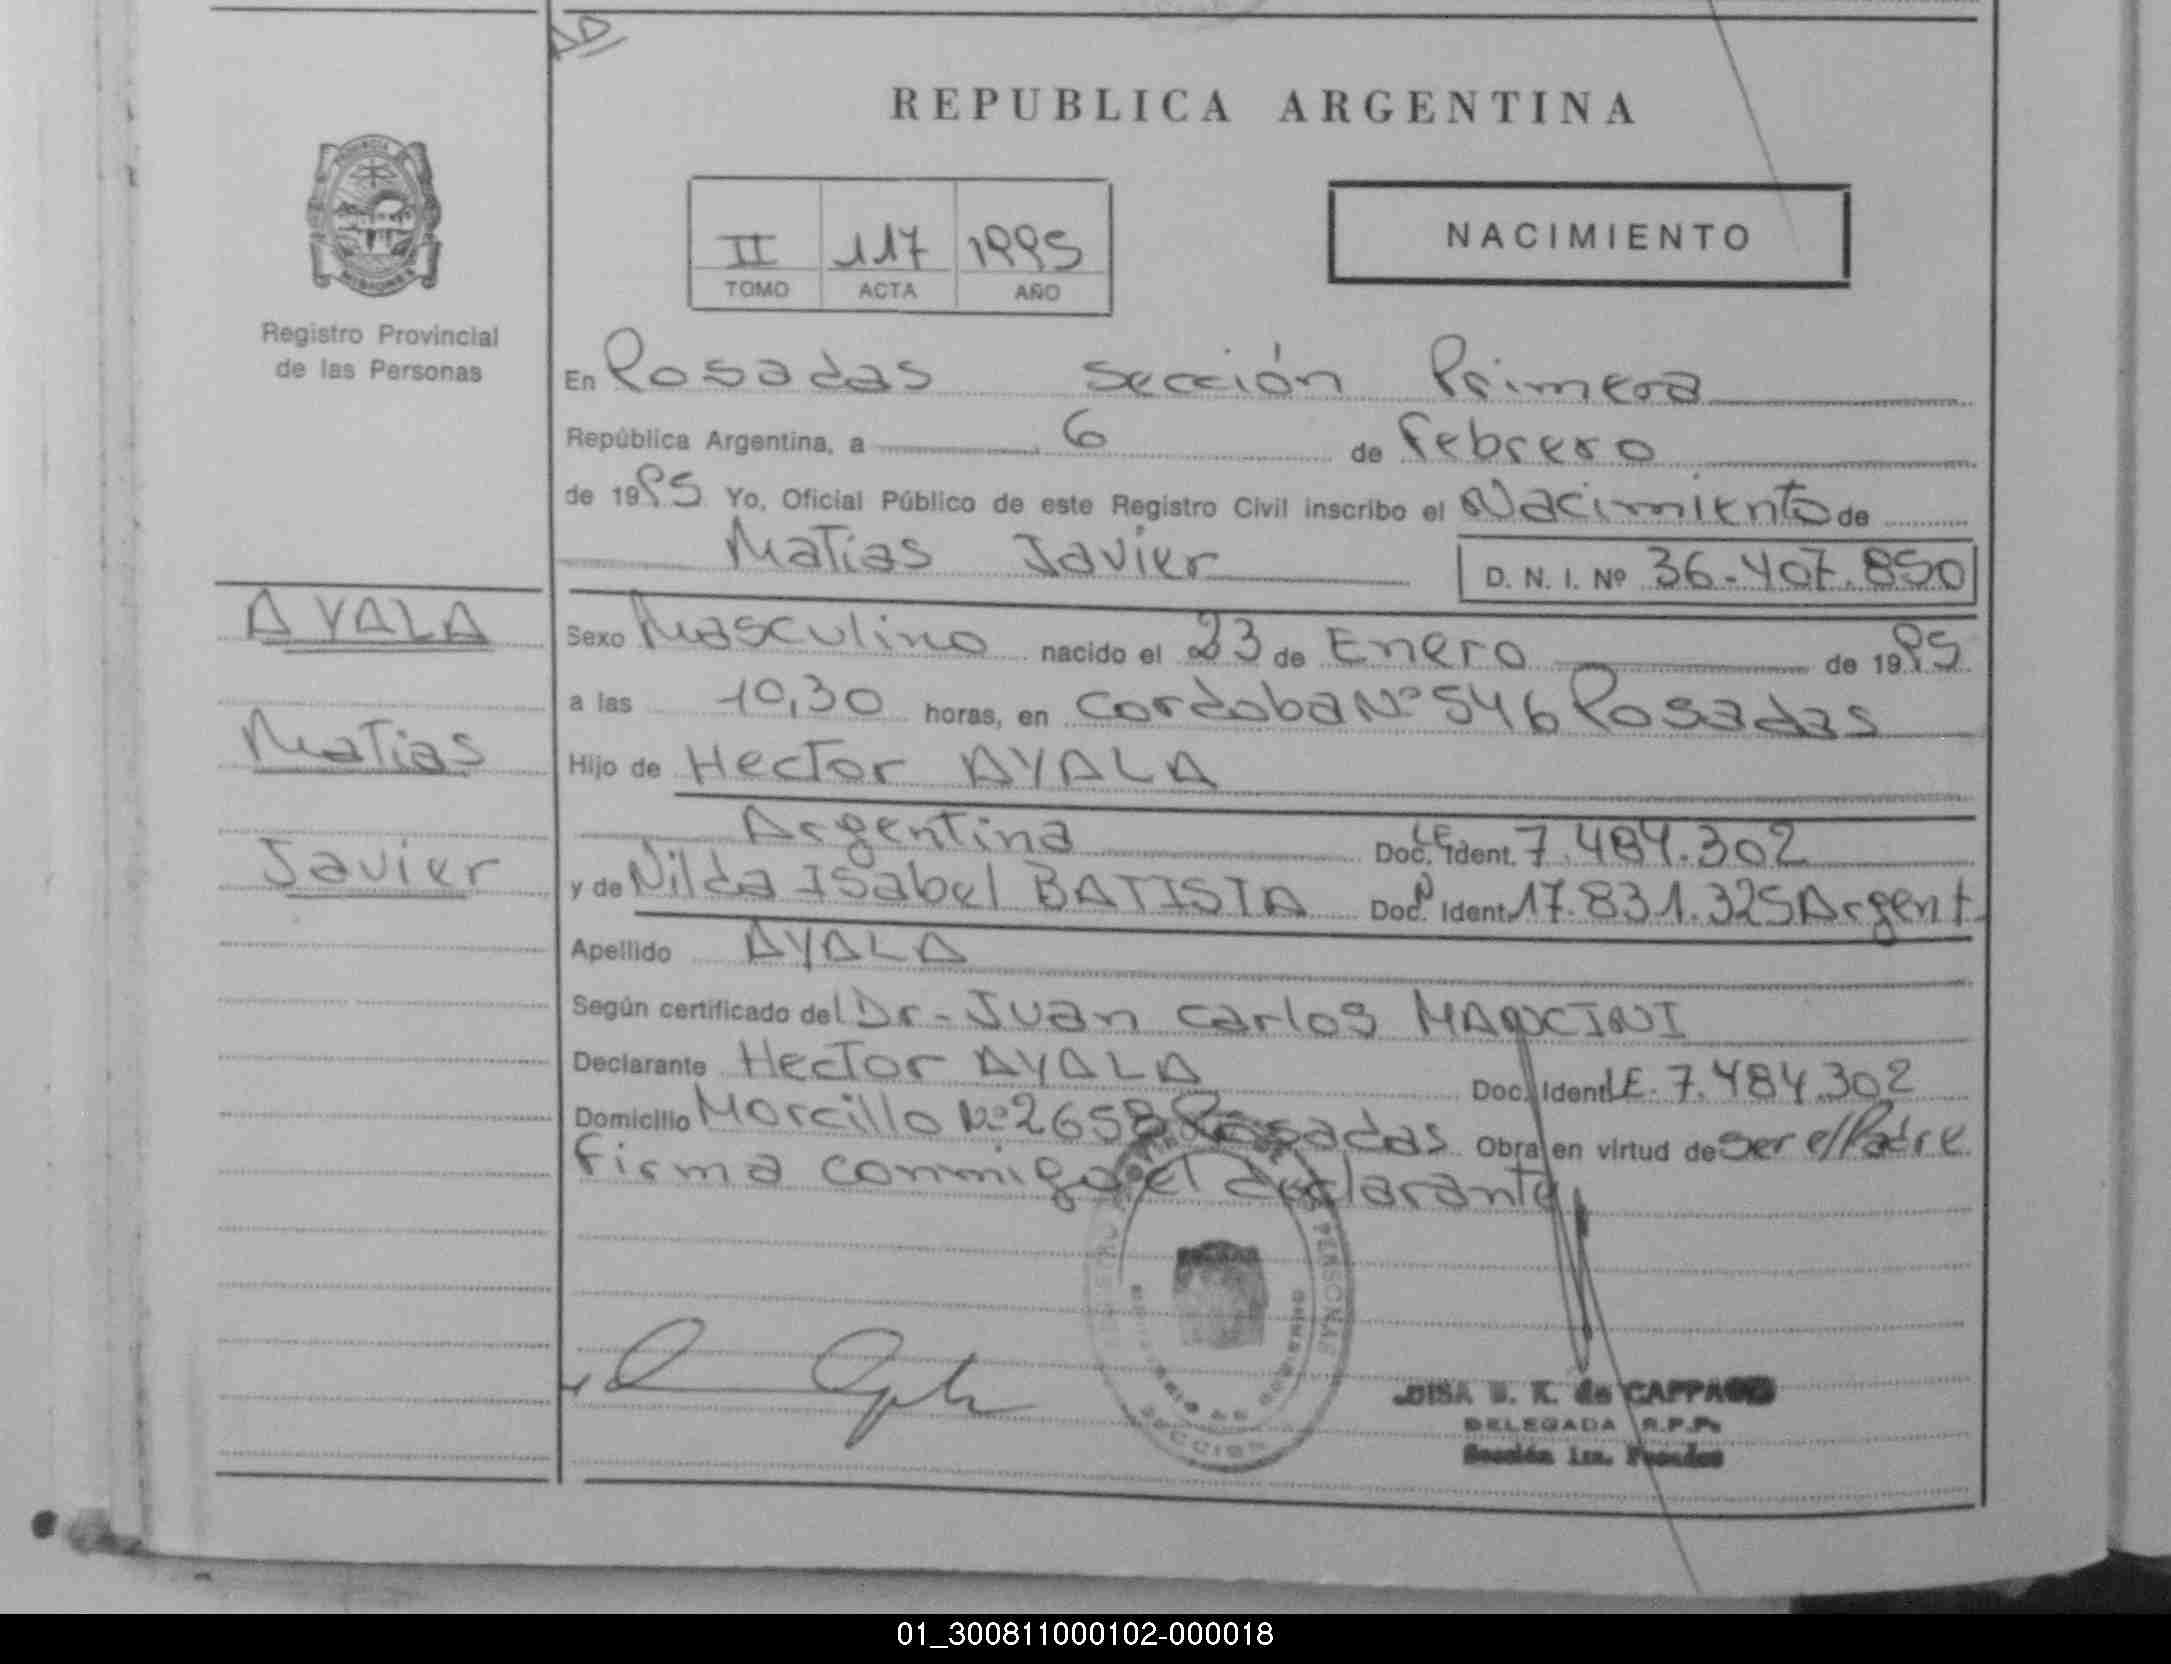 REPUBLICA ARGENTINA
II 117 1995
TOMO ACTA AÑO
NACIMIENTO
Registro Provincial
de las Personas
En Posadas Sección Primera
República Argentina, a 6 de Febrero
de 1995 Yo, Oficial Público de este Registro Civil inscribo el Nacimiento de
Matias Javier D. N. I. Nº 36.407.850
AYALA
Matias
Javier
Sexo Masculino nacido el 23 de Enero de 1995
a las 10,30 horas, en Cordoba Nº 546 Posadas
Hijo de Hector AYALA
Argentina Doc. Ident. LE 7.484.302
y de Nilda Isabel BATISTA Doc. Ident. 17.831.325 Argent.
Apellido AYALA
Según certificado del Dr. Juan Carlos MANCINI
Declarante Hector AYALA Doc. Ident. LE. 7.484.302
Domicilio Morcillo Nº 2658 Posadas Obra en virtud de ser el Padre
Firma conmigo el declarante
PERSONAS
SECCION
DISA de CAPPA
DELEGADA R.P.P.
Sección 1ra. Posadas
01_300811000102-000018